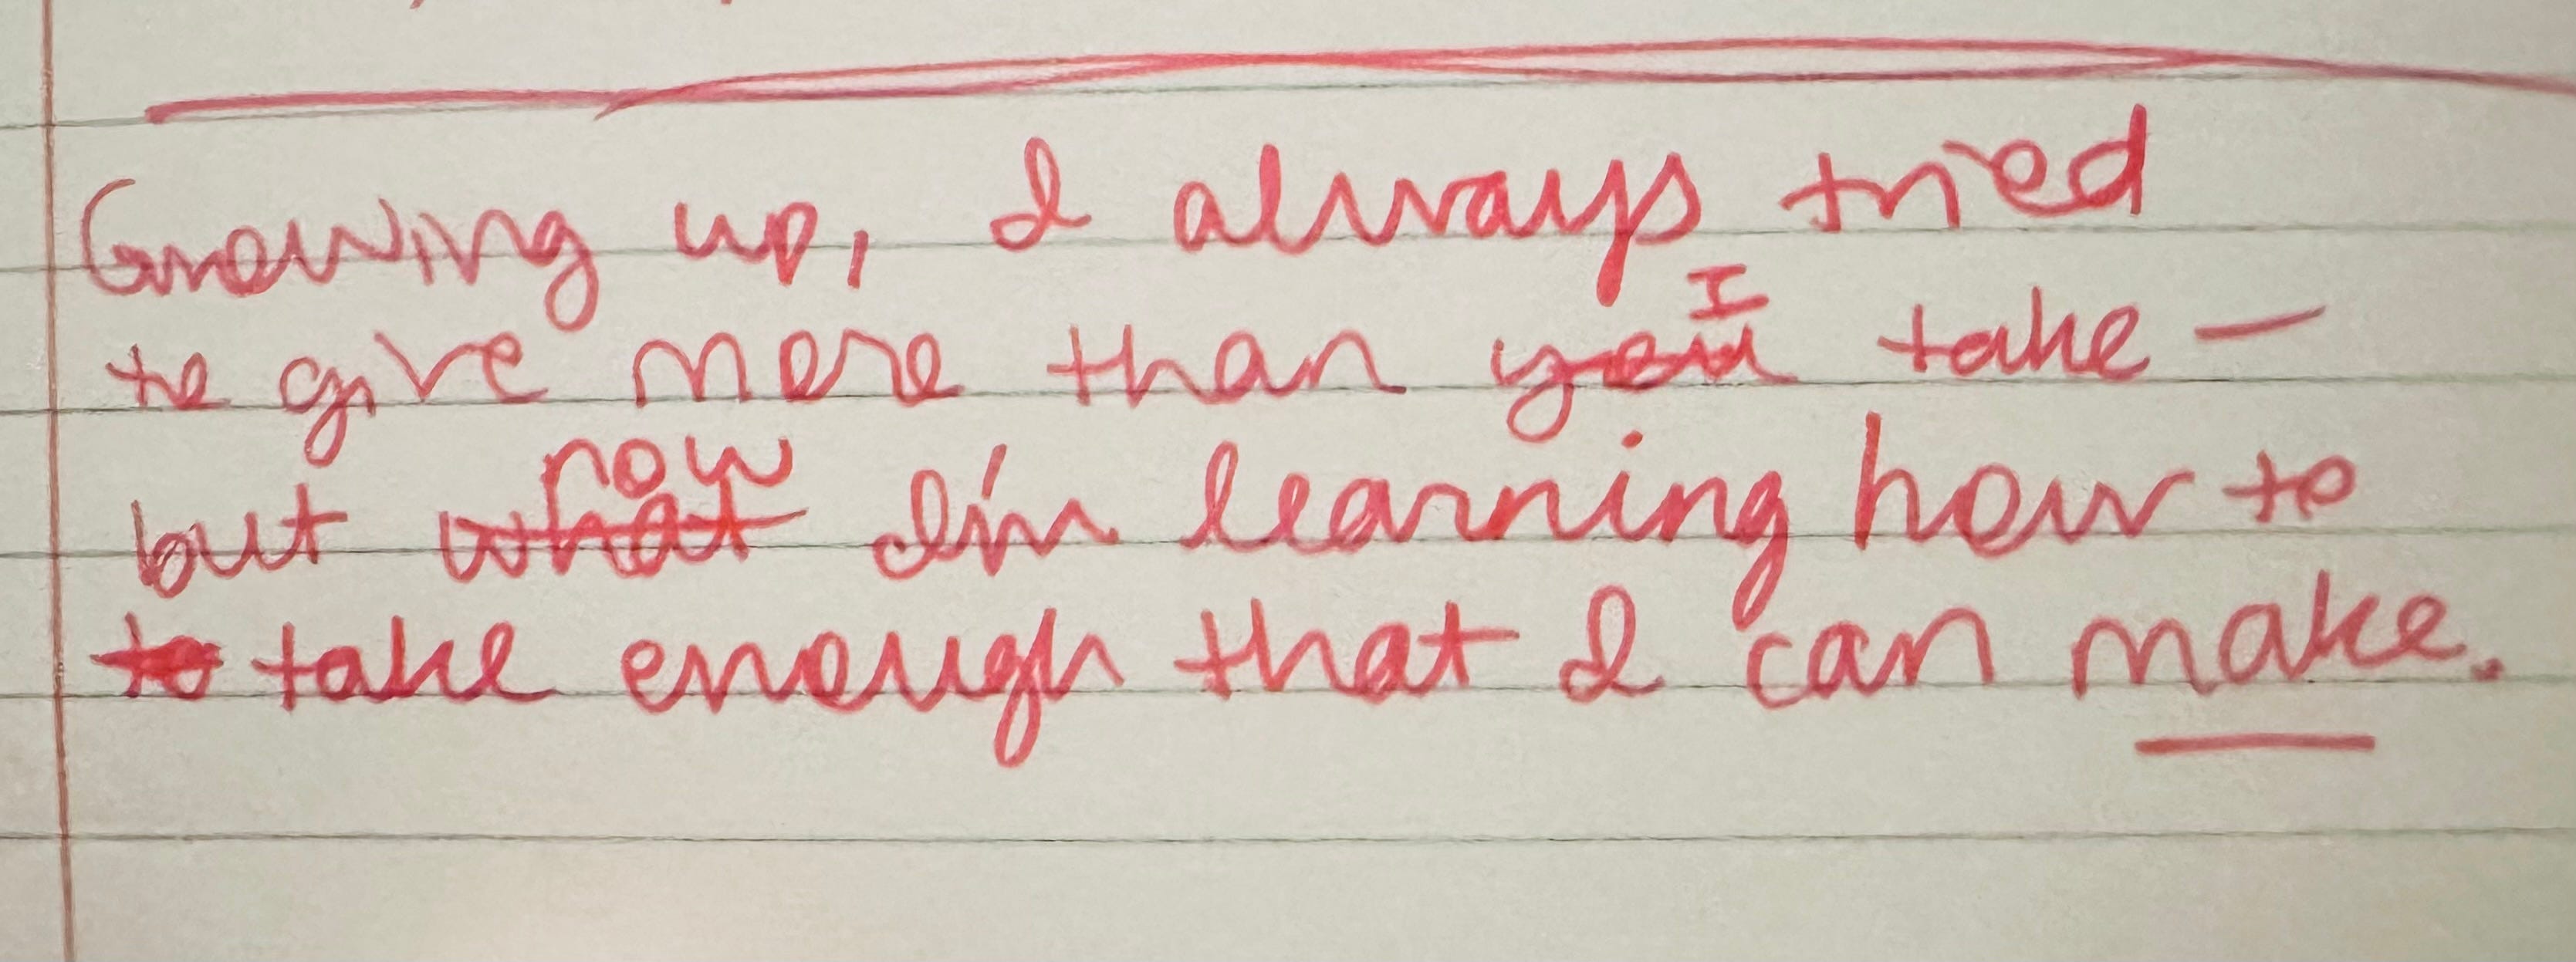 Growing up, I always tried
to give more than ~~you~~ I take —
but ~~what~~ now I'm learning how to
~~to~~ take enough that I can make.